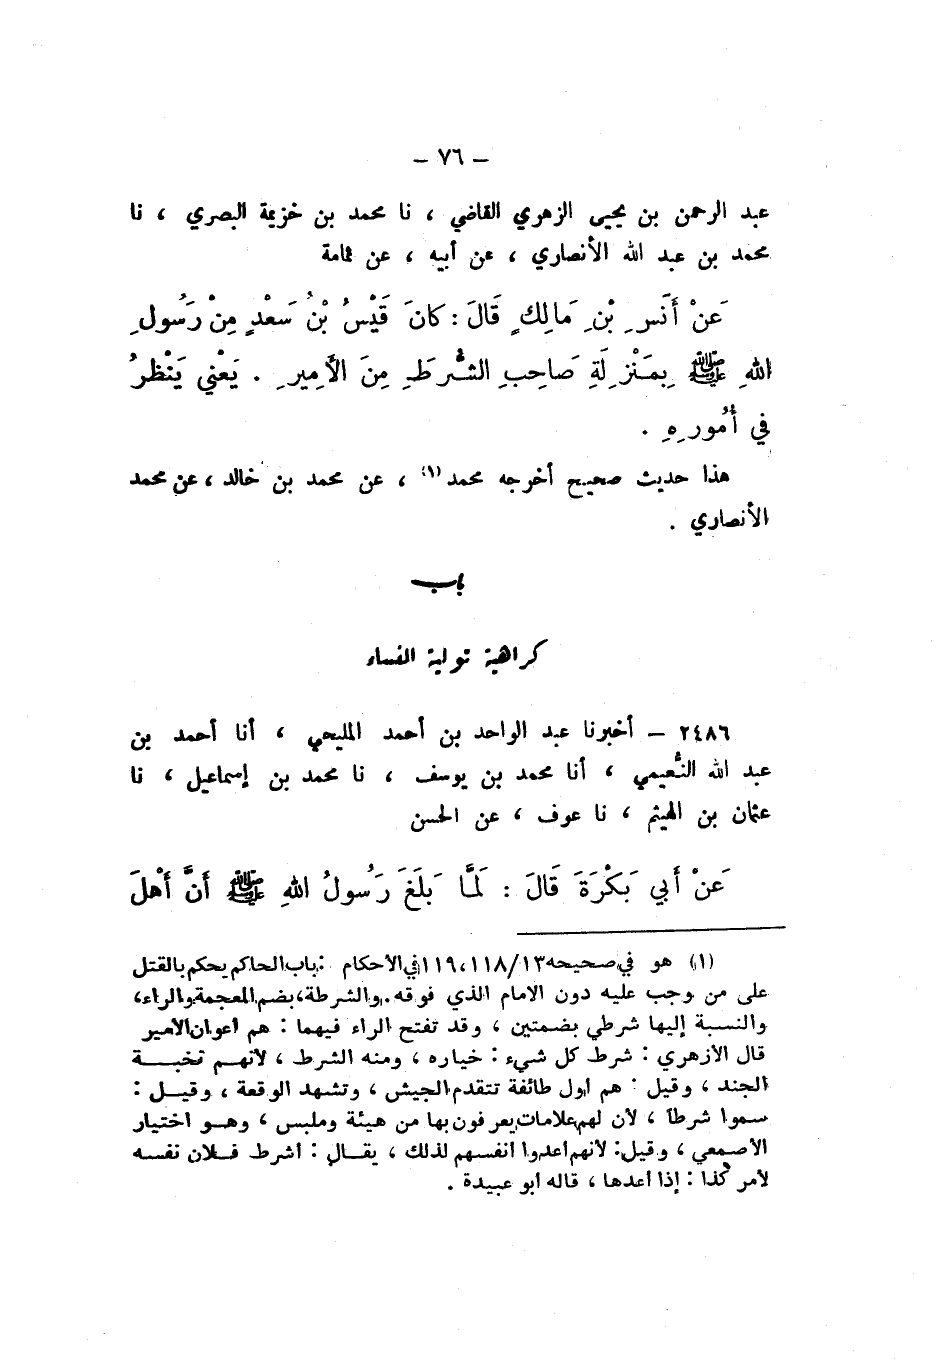 — ٧٦ —
عبد الرحمن بن يحيى الزهري القاضي ، نا محمد بن خزيمة البصري ، نا
محمد بن عبد الله الأنصاري ، عن أبيه ، عن ثمامة
عَنْ أَنَسِ بْنِ مَالِكٍ قَالَ : كَانَ قَيْسُ بْنُ سَعْدٍ مِنْ رَسُولِ
اللهِ ﷺ بِمَنْزِلَةِ صَاحِبِ الشُّرَطِ مِنَ الأَمِيرِ . يَعْنِي يَنْظُرُ
فِي أُمُورِهِ .
هذا حديث صحيح أخرجه محمد (١) ، عن محمد بن خالد ، عن محمد
الأنصاري .
باب
كراهية تولية النساء
٢٤٨٦ — أخبرنا عبد الواحد بن أحمد المليحي ، أنا أحمد بن
عبد الله النُّعيمي ، أنا محمد بن يوسف ، نا محمد بن إسماعيل ، نا
عثمان بن الهيثم ، نا عوف ، عن الحسن
عَنْ أَبِي بَكْرَةَ قَالَ : لَمَّا بَلَغَ رَسُولُ اللهِ ﷺ أَنَّ أَهْلَ
(١) هو في صحيحه ١١٨/١٣ ، ١١٩ في الأحكام : باب الحاكم يحكم بالقتل
على من وجب عليه دون الامام الذي فوقه . والشرطة ، بضم المعجمة والراء ،
والنسبة إليها شرطي بضمتين ، وقد تفتح الراء فيهما : هم أعوان الأمير
قال الأزهري : شرط كل شيء : خياره ، ومنه الشرط ، لأنهم نخبـة
الجند ، وقيل : هم أول طائفة تتقدم الجيش ، وتشهد الوقعة ، وقيـل :
سموا شرطا ، لأن لهم علامات يعرفون بها من هيئة وملبس ، وهـو اختيار
الأصمعي ، وقيل : لأنهم أعدوا أنفسهم لذلك ، يقـال : أشرط فـلان نفسه
لأمر كذا : إذا أعدها ، قاله أبو عبيدة .